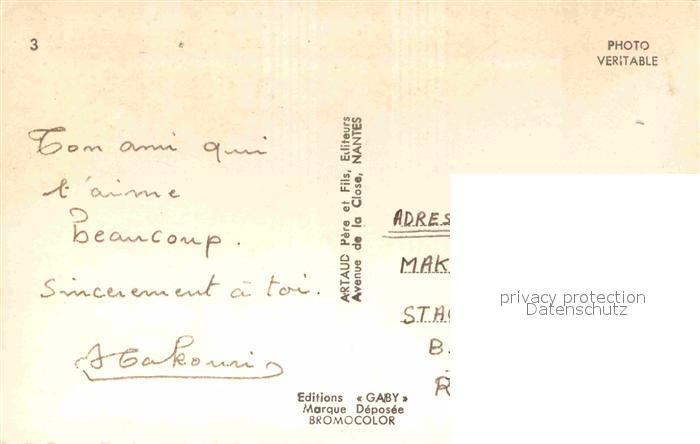 3
PHOTO
VERITABLE
Ton ami qui
t'aime
beaucoup.
Sincerement à toi.
ARTAUD Père et Fils, Editeurs
Avenue de la Close, NANTES
ADRES
MAK
STA
B.
R
privacy protection
Datenschutz
Editions « GABY »
Marque Déposée
BROMOCOLOR